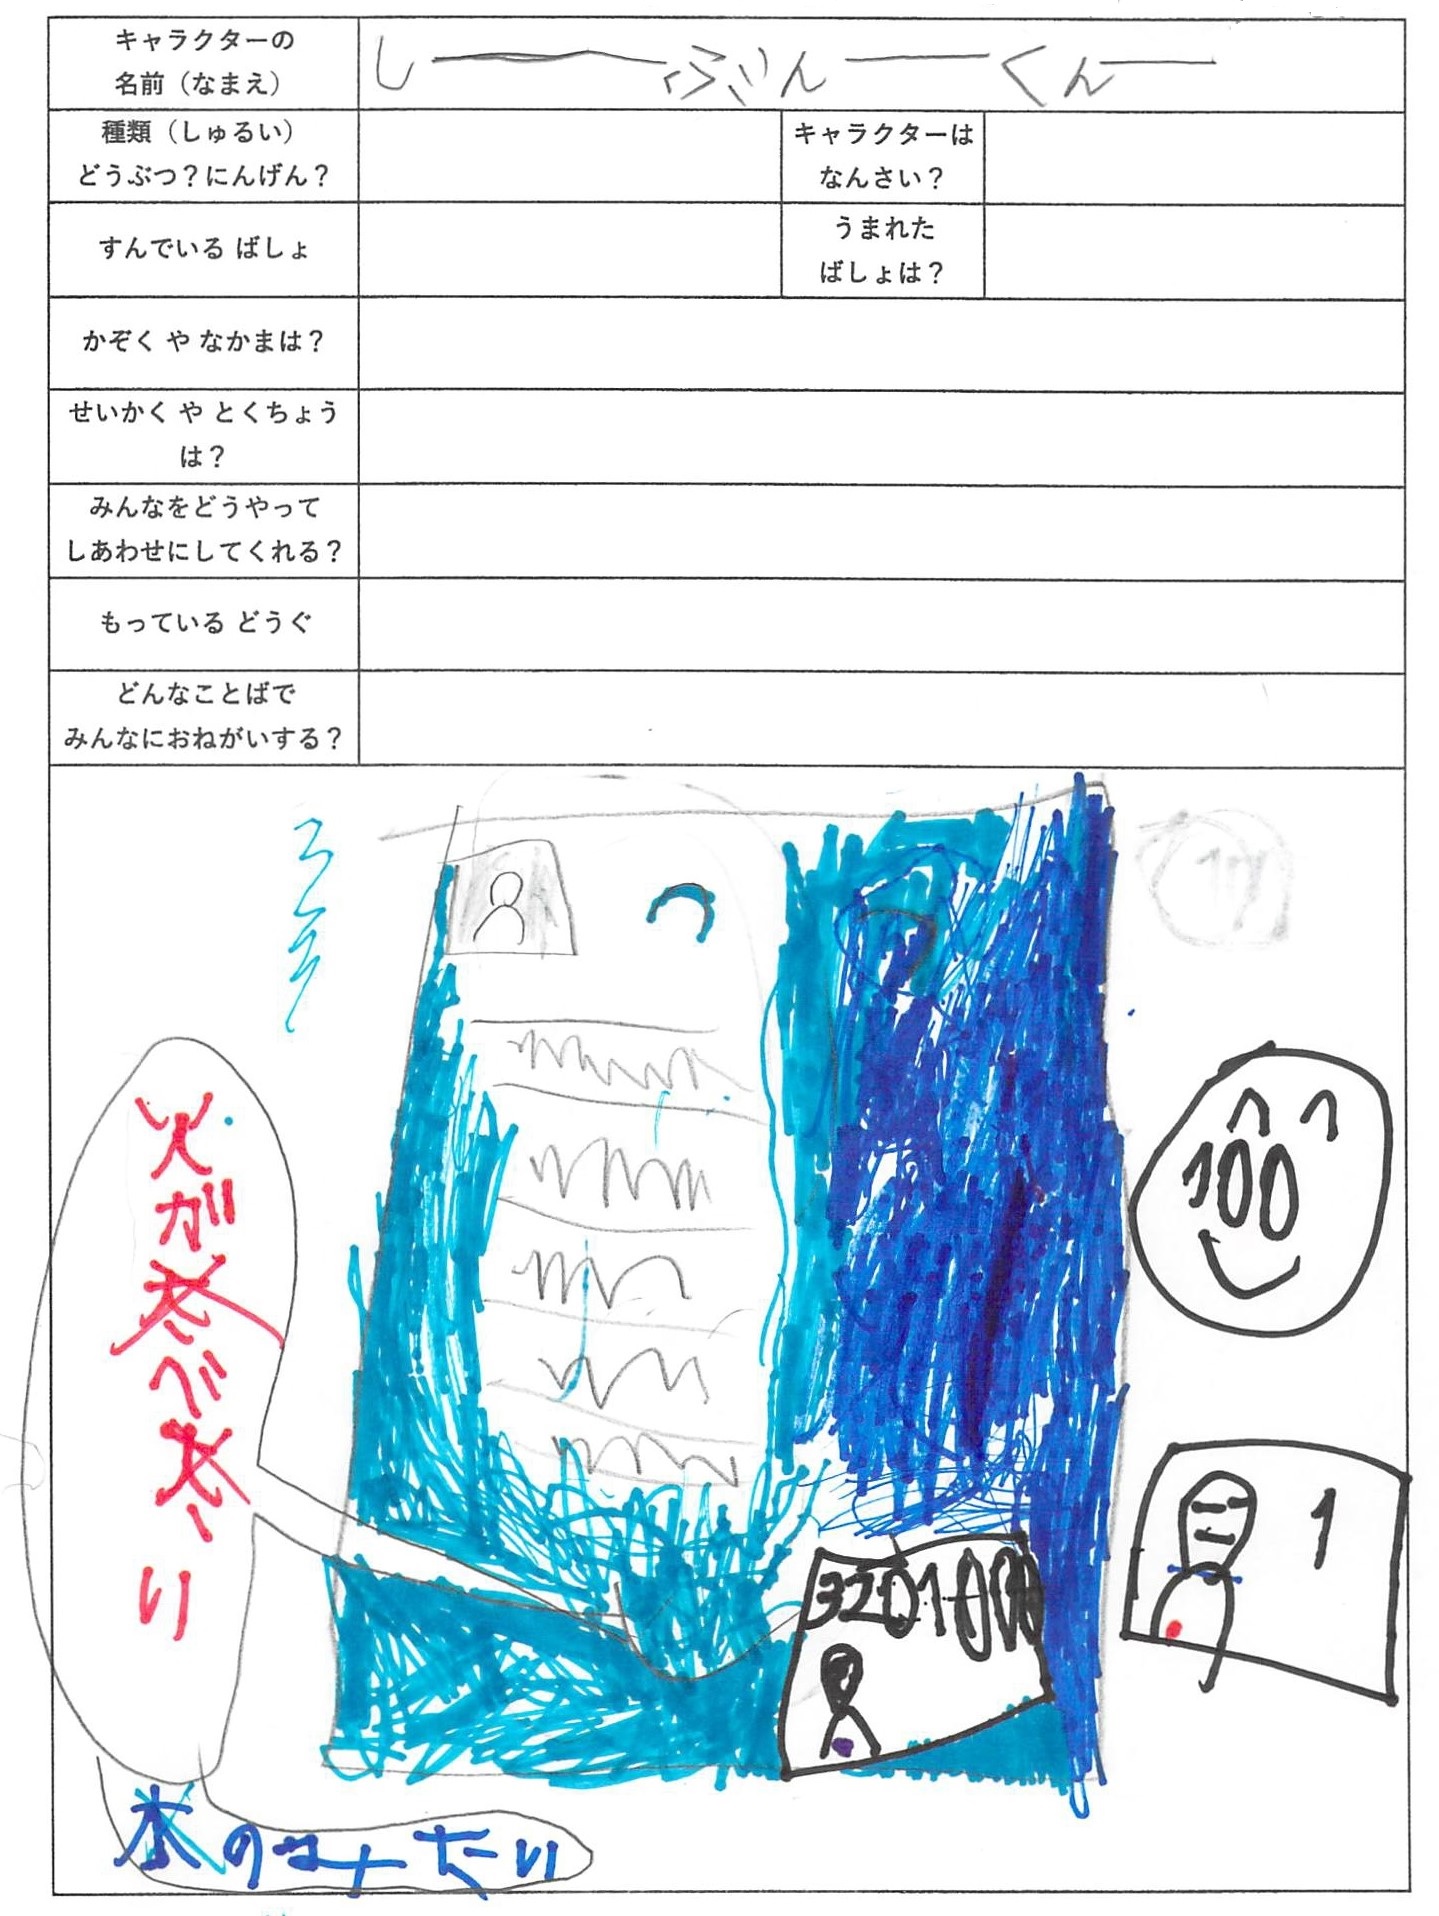 キャラクターの
名前（なまえ）
し――ぶいん――くん――
種類（しゅるい）
どうぶつ？にんげん？
キャラクターは
なんさい？
すんでいる ばしょ
うまれた
ばしょは？
かぞく や なかまは？
せいかく や とくちょう
は？
みんなをどうやって
しあわせにしてくれる？
もっている どうぐ
どんなことばで
みんなにおねがいする？
100
火が
べ
り
1
の
たい